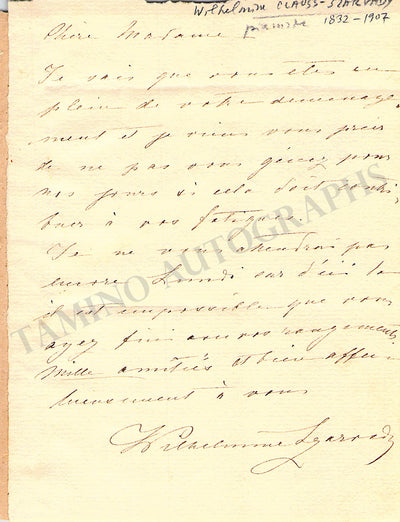 Wilhelmine CLAUSS-SZARVADY
pianiste 1832-1907
Chère Madame
Je sais que vous êtes en
plein de votre déménage-
ment et je viens vous prier
de ne pas vous gêner pour
nos jours si cela doit contri-
buer à vos fatigues.
Je ne vous attendrai pas
encore Lundi car d'ici là
il est impossible que vous
ayez fini avec vos rangements
Mille amitiés et bien affec-
tueusement à vous
Wilhelmine Szarvady
TAMINO AUTOGRAPHS